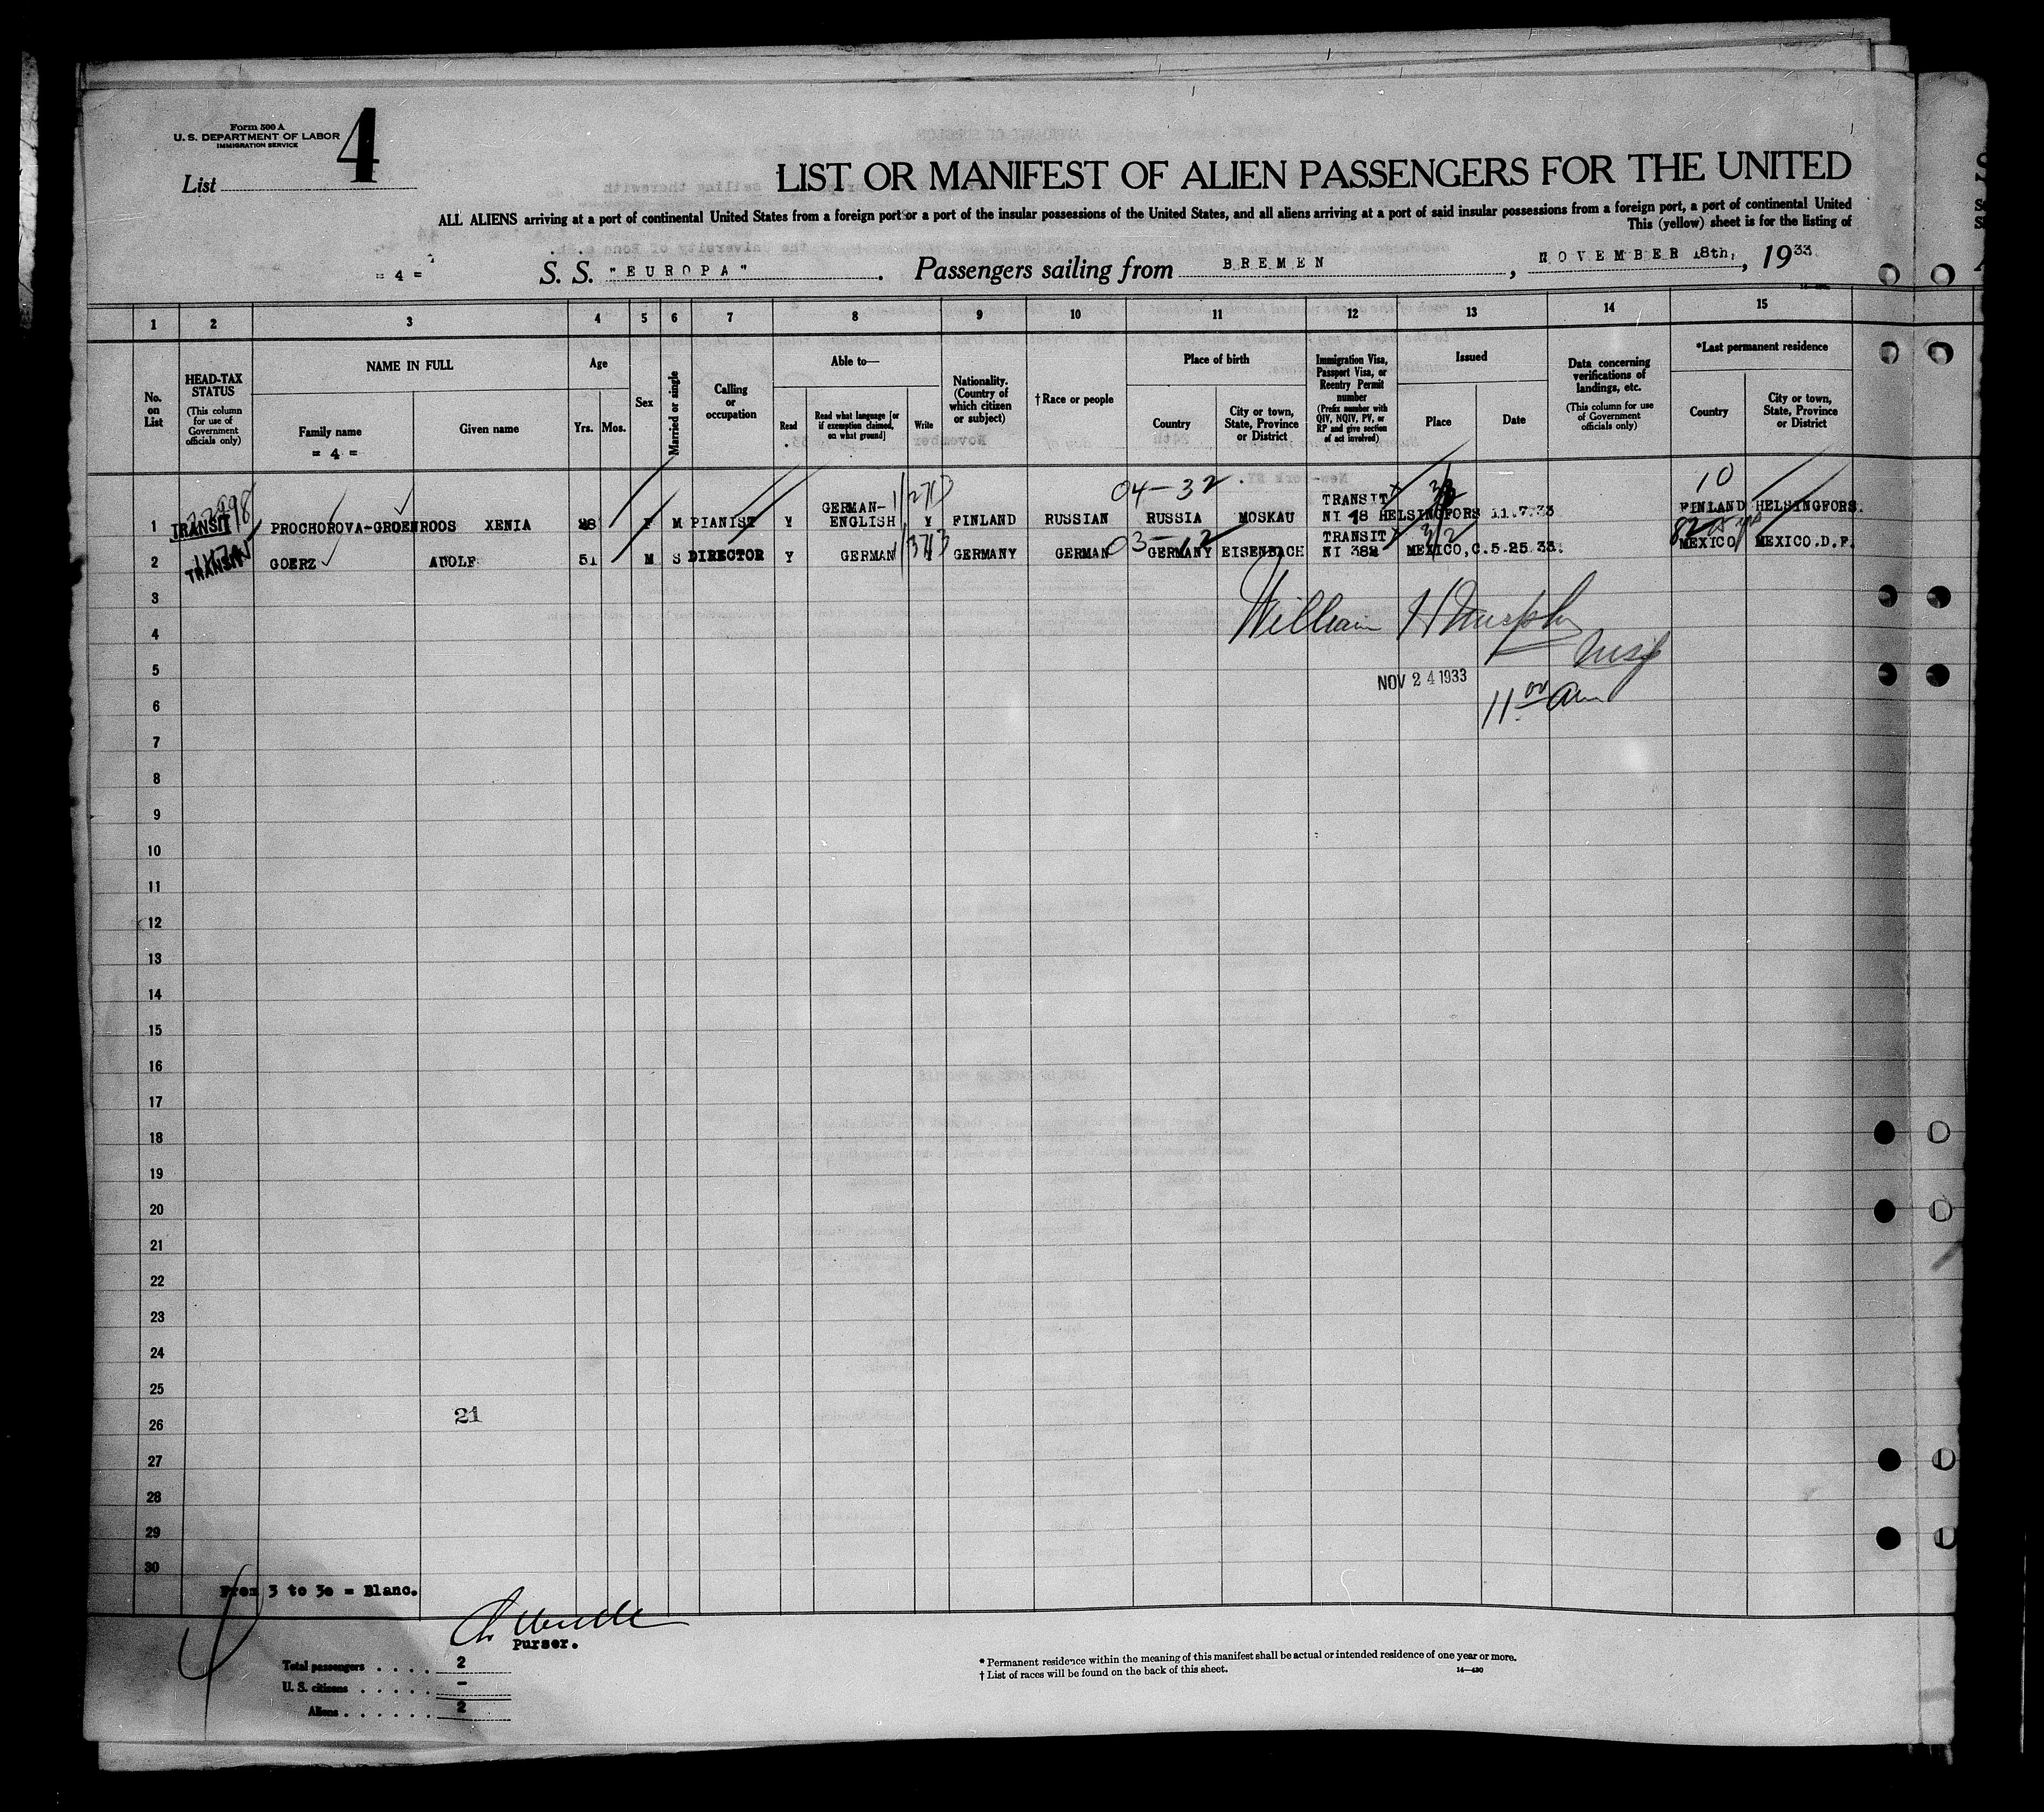 Form 500 A
U. S. DEPARTMENT OF LABOR
IMMIGRATION SERVICE
List 4
LIST OR MANIFEST OF ALIEN PASSENGERS FOR THE UNITED
ALL ALIENS arriving at a port of continental United States from a foreign port or a port of the insular possessions of the United States, and all aliens arriving at a port of said insular possessions from a foreign port, a port of continental United
This (yellow) sheet is for the listing of
= 4 = S. S. "EUROPA" . Passengers sailing from BREMEN , NOVEMBER 18th, , 1933
1 2 3 4 5 6 7 8 9 10 11 12 13 14 15
No. on List
HEAD-TAX STATUS
(This column for use of Government officials only)
NAME IN FULL
Family name
= 4 =
Given name
Age
Yrs. Mos.
Sex
Married or single
Calling or occupation
Able to—
Read
Read what language [or if exemption claimed, on what ground]
Write
Nationality. (Country of which citizen or subject)
†Race or people
Place of birth
Country
City or town, State, Province or District
Immigration Visa, Passport Visa, or Reentry Permit number
(Prefix number with QIV, NQIV, PV, or RP and give section of act involved)
Issued
Place
Date
Data concerning verifications of landings, etc.
(This column for use of Government officials only)
*Last permanent residence
Country
City or town, State, Province or District
04-32
10
1 TRANSIT PROCHOROVA-GROENROOS XENIA 28 F M PIANIST Y GERMAN-ENGLISH Y FINLAND RUSSIAN RUSSIA MOSKAU TRANSIT NI 48 HELSINGFORS 11.7.33 FINLAND HELSINGFORS.
03-12
2 TRANSIT GOERZ ADOLF 51 M S DIRECTOR Y GERMAN GERMANY GERMAN GERMANY EISENBACH TRANSIT NI 382 MEXICO,C. 5.25.33. MEXICO MEXICO.D.F.
3
William H Murphy
4
Insp
5
NOV 24 1933
11 00 am
6
7
8
9
10
11
12
13
14
15
16
17
18
19
20
21
22
23
24
25
21
26
27
28
29
30
From 3 to 30 = Blanc.
Purser.
Total passengers . . . . 2
U. S. citizens . . . . . –
Aliens . . . . . . 2
* Permanent residence within the meaning of this manifest shall be actual or intended residence of one year or more.
† List of races will be found on the back of this sheet.
14—430